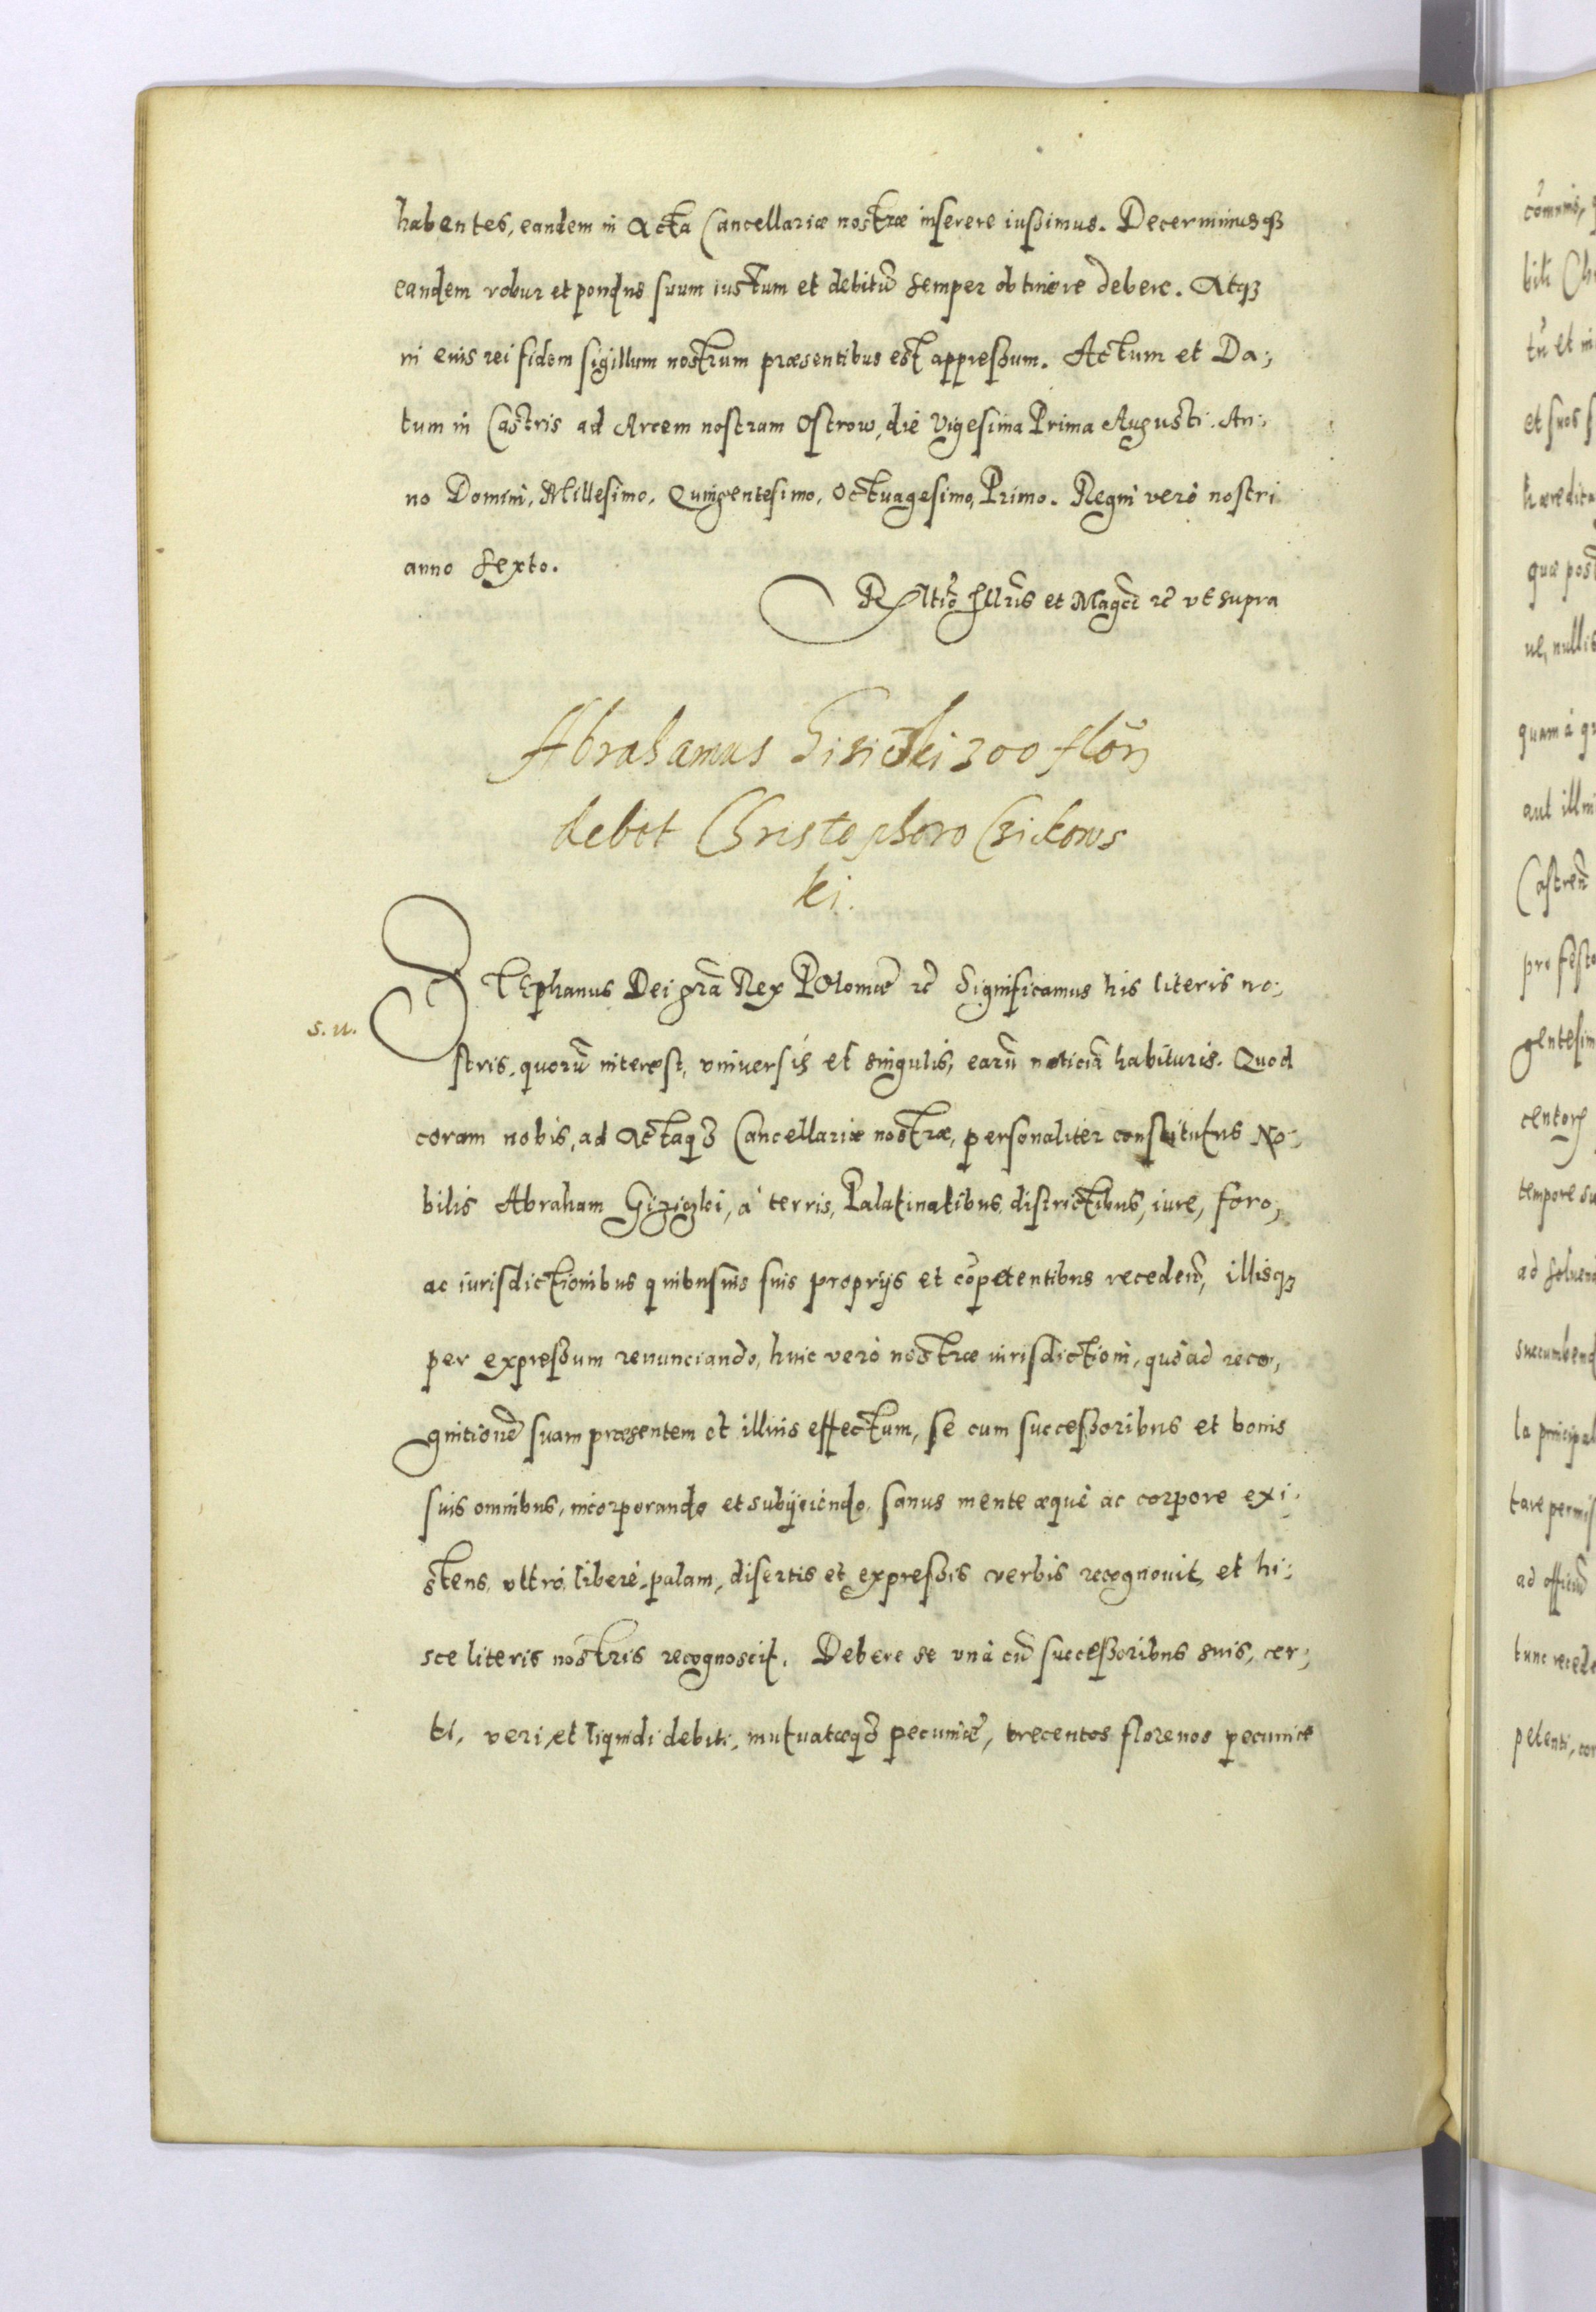 habentes, eandem in Acta Cancellariæ nostræ inserere iussimus. Decernimusq₃
eandem robur et pondus suum iustum et debitū semper obtinere debere. Atq₃
in eius rei fidem sigillum nostrum præsentibus est appressum. Actum et Da:,
tum in Castris ad Arcem nostram Ostrow, die Vigesima Prima Augusti. An:,
no Domini, Millesimo, Quingentesimo, Octuagesimo, Primo. Regni verò nostri
anno Sexto.
Rltio Illris et Magci rc̃ vt supra
Abrahamus Gisicki 300 flōn
debet Christophoro Czikows
ki.
STEphanus Dei grā Rex POloniæ rc̃ Significamus his literis no:,
s. u.
stris, quorū interest, vniuersis et singulis, earū noticiā habituris. Quod
coram nobis, ad Actaq₃ Cancellariæ nostræ, personaliter constitutus No:,
bilis Abraham Giziczki, à terris, Palatinatibus, districtibus, iure, foro,
ac iurisdictionibus quibusuis suis proprijs et cōpetentibus recedeñ, illisq₃
per expressum renunciando, huic verò nostræ iurisdictioni, quò ad reco:,
gnitionē suam præsentem et illius effectum, se cum successoribus et bonis
suis omnibus, incorporando et subijciendo, sanus mente æquè ac corpore exi:,
stens, vltrò, liberè, palam, disertis et expressis verbis recognouit, et hi:,
sce literis nostris recognoscit. Debere se vnà cū successoribus suis, cer:,
ti, veri, et liquidi debiti, mutuatæq₃ pecuniæ, trecentos florenos pecuniæ